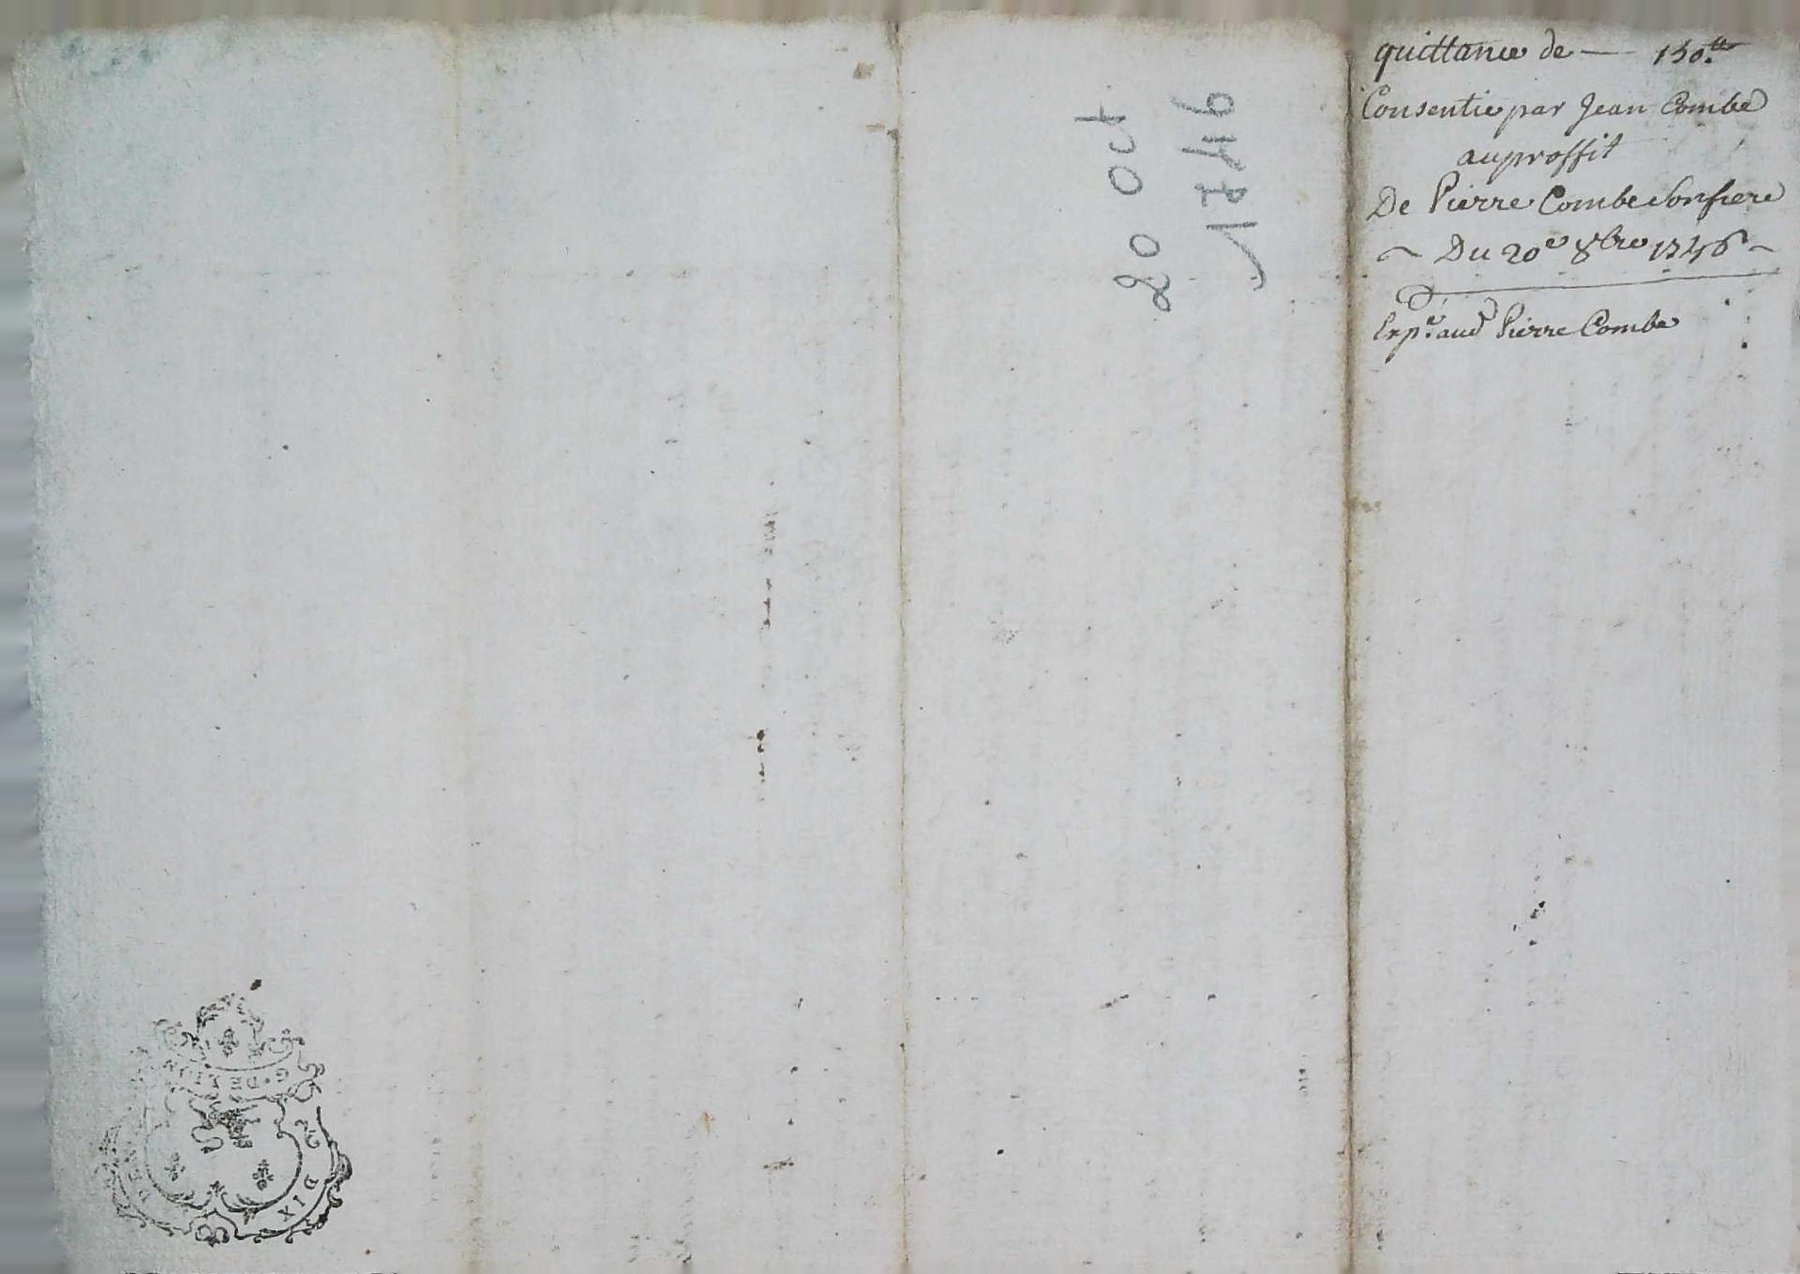 quittance de — 150.tt
Consentie par Jean Combe
auproffit
De Pierre Combe Son frere
~ Du 20e 8bre 1746 ~
Expe. aud Pierre Combe
20 Oct
1746
G. DE
DIX